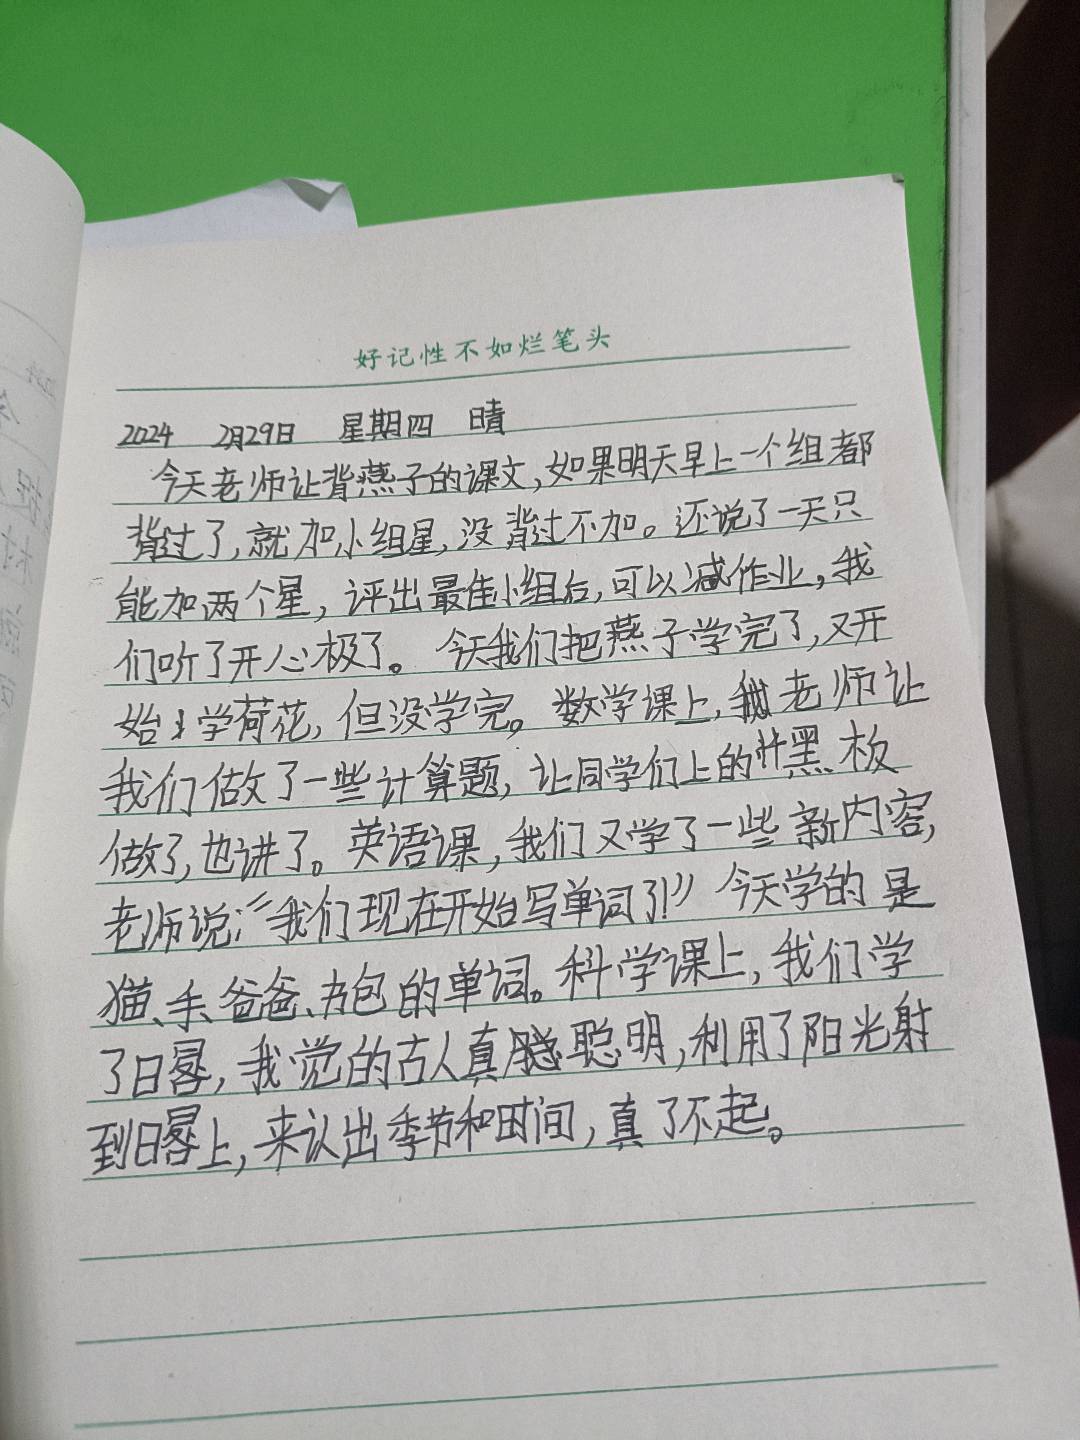 好记性不如烂笔头
2024 2月29日 星期四 晴
今天老师让背燕子的课文,如果明天早上一个组都
背过了,就加小组星,没背过不加。还说了一天只
能加两个星,评出最佳小组后,可以减作业,我
们听了开心极了。今天我们把燕子学完了,又开
始学荷花,但没学完。数学课上,老师让
我们做了一些计算题,让同学们上的黑板
做了,也讲了。英语课,我们又学了一些新内容,
老师说:“我们现在开始写单词了!”今天学的是
猫、手、爸爸、书包的单词。科学课上,我们学
了日晷,我觉的古人真聪明,利用了阳光射
到日晷上,来认出季节和时间,真了不起。